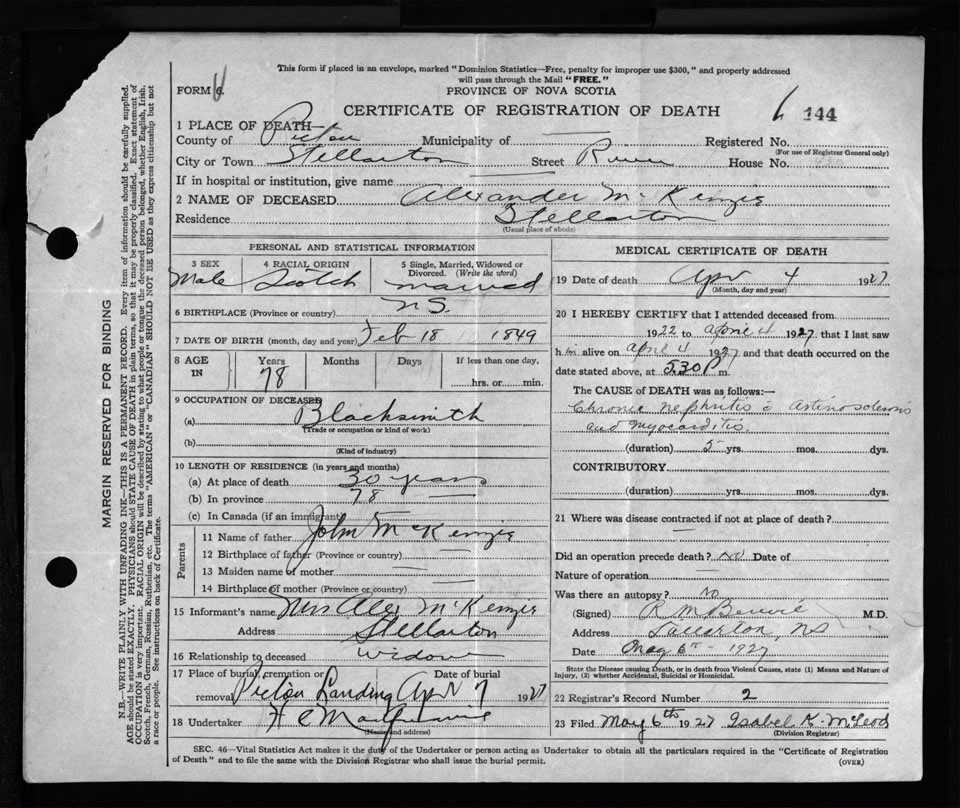 This form if placed in an envelope, marked "Dominion Statistics—Free, penalty for improper use $300," and properly addressed
will pass through the Mail "FREE."
FORM 6.
PROVINCE OF NOVA SCOTIA
CERTIFICATE OF REGISTRATION OF DEATH
144
1 PLACE OF DEATH—
County of Pictou Municipality of — Registered No.
(For use of Registrar General only)
City or Town Stellarton Street River House No.
If in hospital or institution, give name —
2 NAME OF DECEASED Alexander McKenzie
Residence Stellarton
(Usual place of abode)
PERSONAL AND STATISTICAL INFORMATION
3 SEX 4 RACIAL ORIGIN 5 Single, Married, Widowed or Divorced. (Write the word)
Male Scotch married
6 BIRTHPLACE (Province or country) N.S.
7 DATE OF BIRTH (month, day and year) Feb 18 1849
8 AGE IN Years Months Days If less than one day,
78 hrs. or min.
9 OCCUPATION OF DECEASED
(a) Blacksmith
(Trade or occupation or kind of work)
(b)
(Kind of industry)
10 LENGTH OF RESIDENCE (in years and months)
(a) At place of death 30 years
(b) In province 78 —
(c) In Canada (if an immigrant) —
Parents
11 Name of father John McKenzie
12 Birthplace of father (Province or country) —
13 Maiden name of mother —
14 Birthplace of mother —
15 Informant's name Mrs Alex McKenzie
Address Stellarton
16 Relationship to deceased widow
17 Place of burial, cremation or Date of burial
removal Pictou Landing Apr 7 1927
18 Undertaker
(Name and address)
MEDICAL CERTIFICATE OF DEATH
19 Date of death Apr 4 1927
(Month, day and year)
20 I HEREBY CERTIFY that I attended deceased from
1922 to April 4 1927 that I last saw
him alive on April 4 1927 and that death occurred on
date stated above, at 5.30 P m.
The CAUSE of DEATH was as follows:—
Chronic nephritis c Arterio sclerosis
and myocarditis.
(duration) 5 yrs. mos. dys.
CONTRIBUTORY
(duration) yrs. mos. dys.
21 Where was disease contracted if not at place of death?
—
Did an operation precede death? No Date of
Nature of operation —
Was there an autopsy? No
(Signed) R M M.D.
Address Stellarton, NS
Date May 6th 1927
State the Disease causing Death, or in death from Violent Causes, state (1) Means and Nature of
Injury, (2) whether Accidental, Suicidal or Homicidal.
22 Registrar's Record Number 2
23 Filed May 6th 1927 Isabel K. McLeod
(Division Registrar)
SEC. 46—Vital Statistics Act makes it the duty of the Undertaker or person acting as Undertaker to obtain all the particulars required in the "Certificate of Registration
of Death" and to file the same with the Division Registrar who shall issue the burial permit.
(OVER)
MARGIN RESERVED FOR BINDING
N.B.—WRITE PLAINLY WITH UNFADING INK—THIS IS A PERMANENT RECORD. Every item of information should be carefully supplied.
AGE should be stated EXACTLY. PHYSICIANS should STATE CAUSE OF DEATH in plain terms, so that it may be properly classified. Exact statement of
OCCUPATION is very important. RACIAL ORIGIN will be described by stating to what people or tongue the deceased person belonged, whether English, Irish,
Scotch, French, German, Russian, Ruthenian, etc. The terms "AMERICAN" or "CANADIAN" SHOULD NOT BE USED as they express citizenship but not
a race or people. See instructions on back of Certificate.